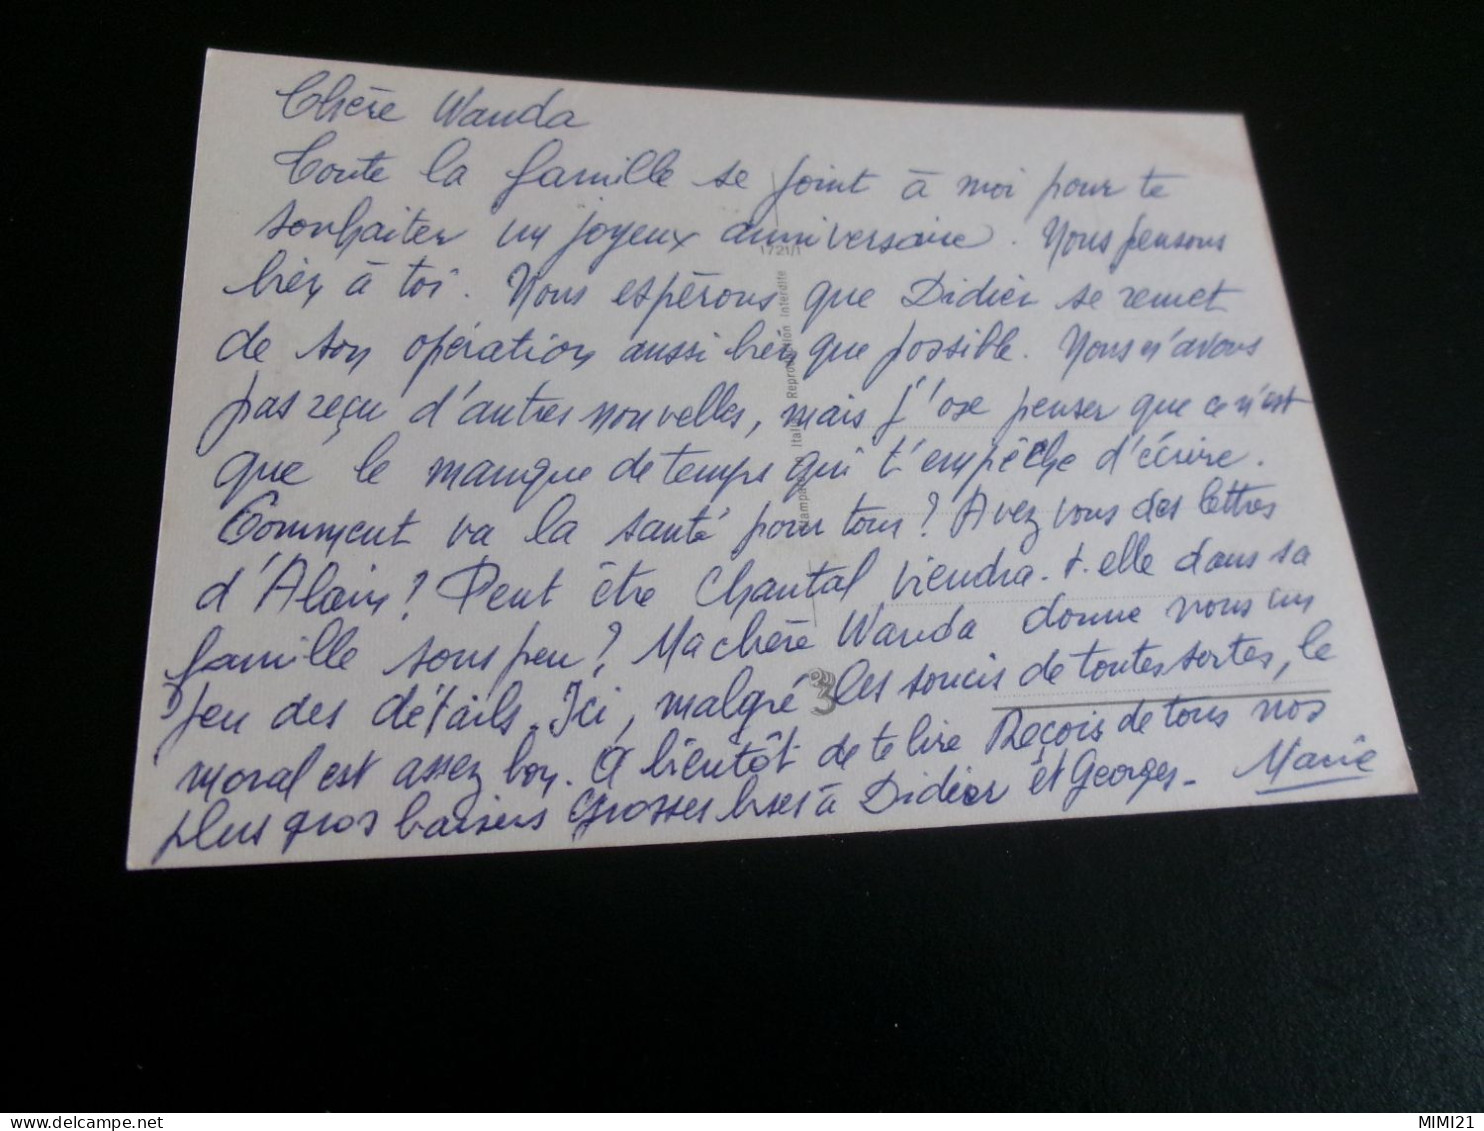 Chère Wanda
Toute la famille se joint à moi pour te
souhaiter un joyeux anniversaire. Nous pensons
bien à toi. Nous espérons que Didier se remet
de son opération aussi bien que possible. Nous n'avons
pas reçu d'autres nouvelles, mais j'ose penser que ce n'est
que le manque de temps qui t'empêche d'écrire.
Comment va la santé pour tous? Avez vous des lettres
d'Alain? Peut être Chantal viendra-t-elle dans sa
famille sous peu? Ma chère Wanda donne nous un
peu des détails. Ici, malgré les soucis de toutes sortes, le
moral est assez bon. A bientôt de te lire Reçois de tous nos
plus gros baisers Grosses bises à Didier et Georges - Marie
1721/1
Reproduction Interdite
3
MIMI21